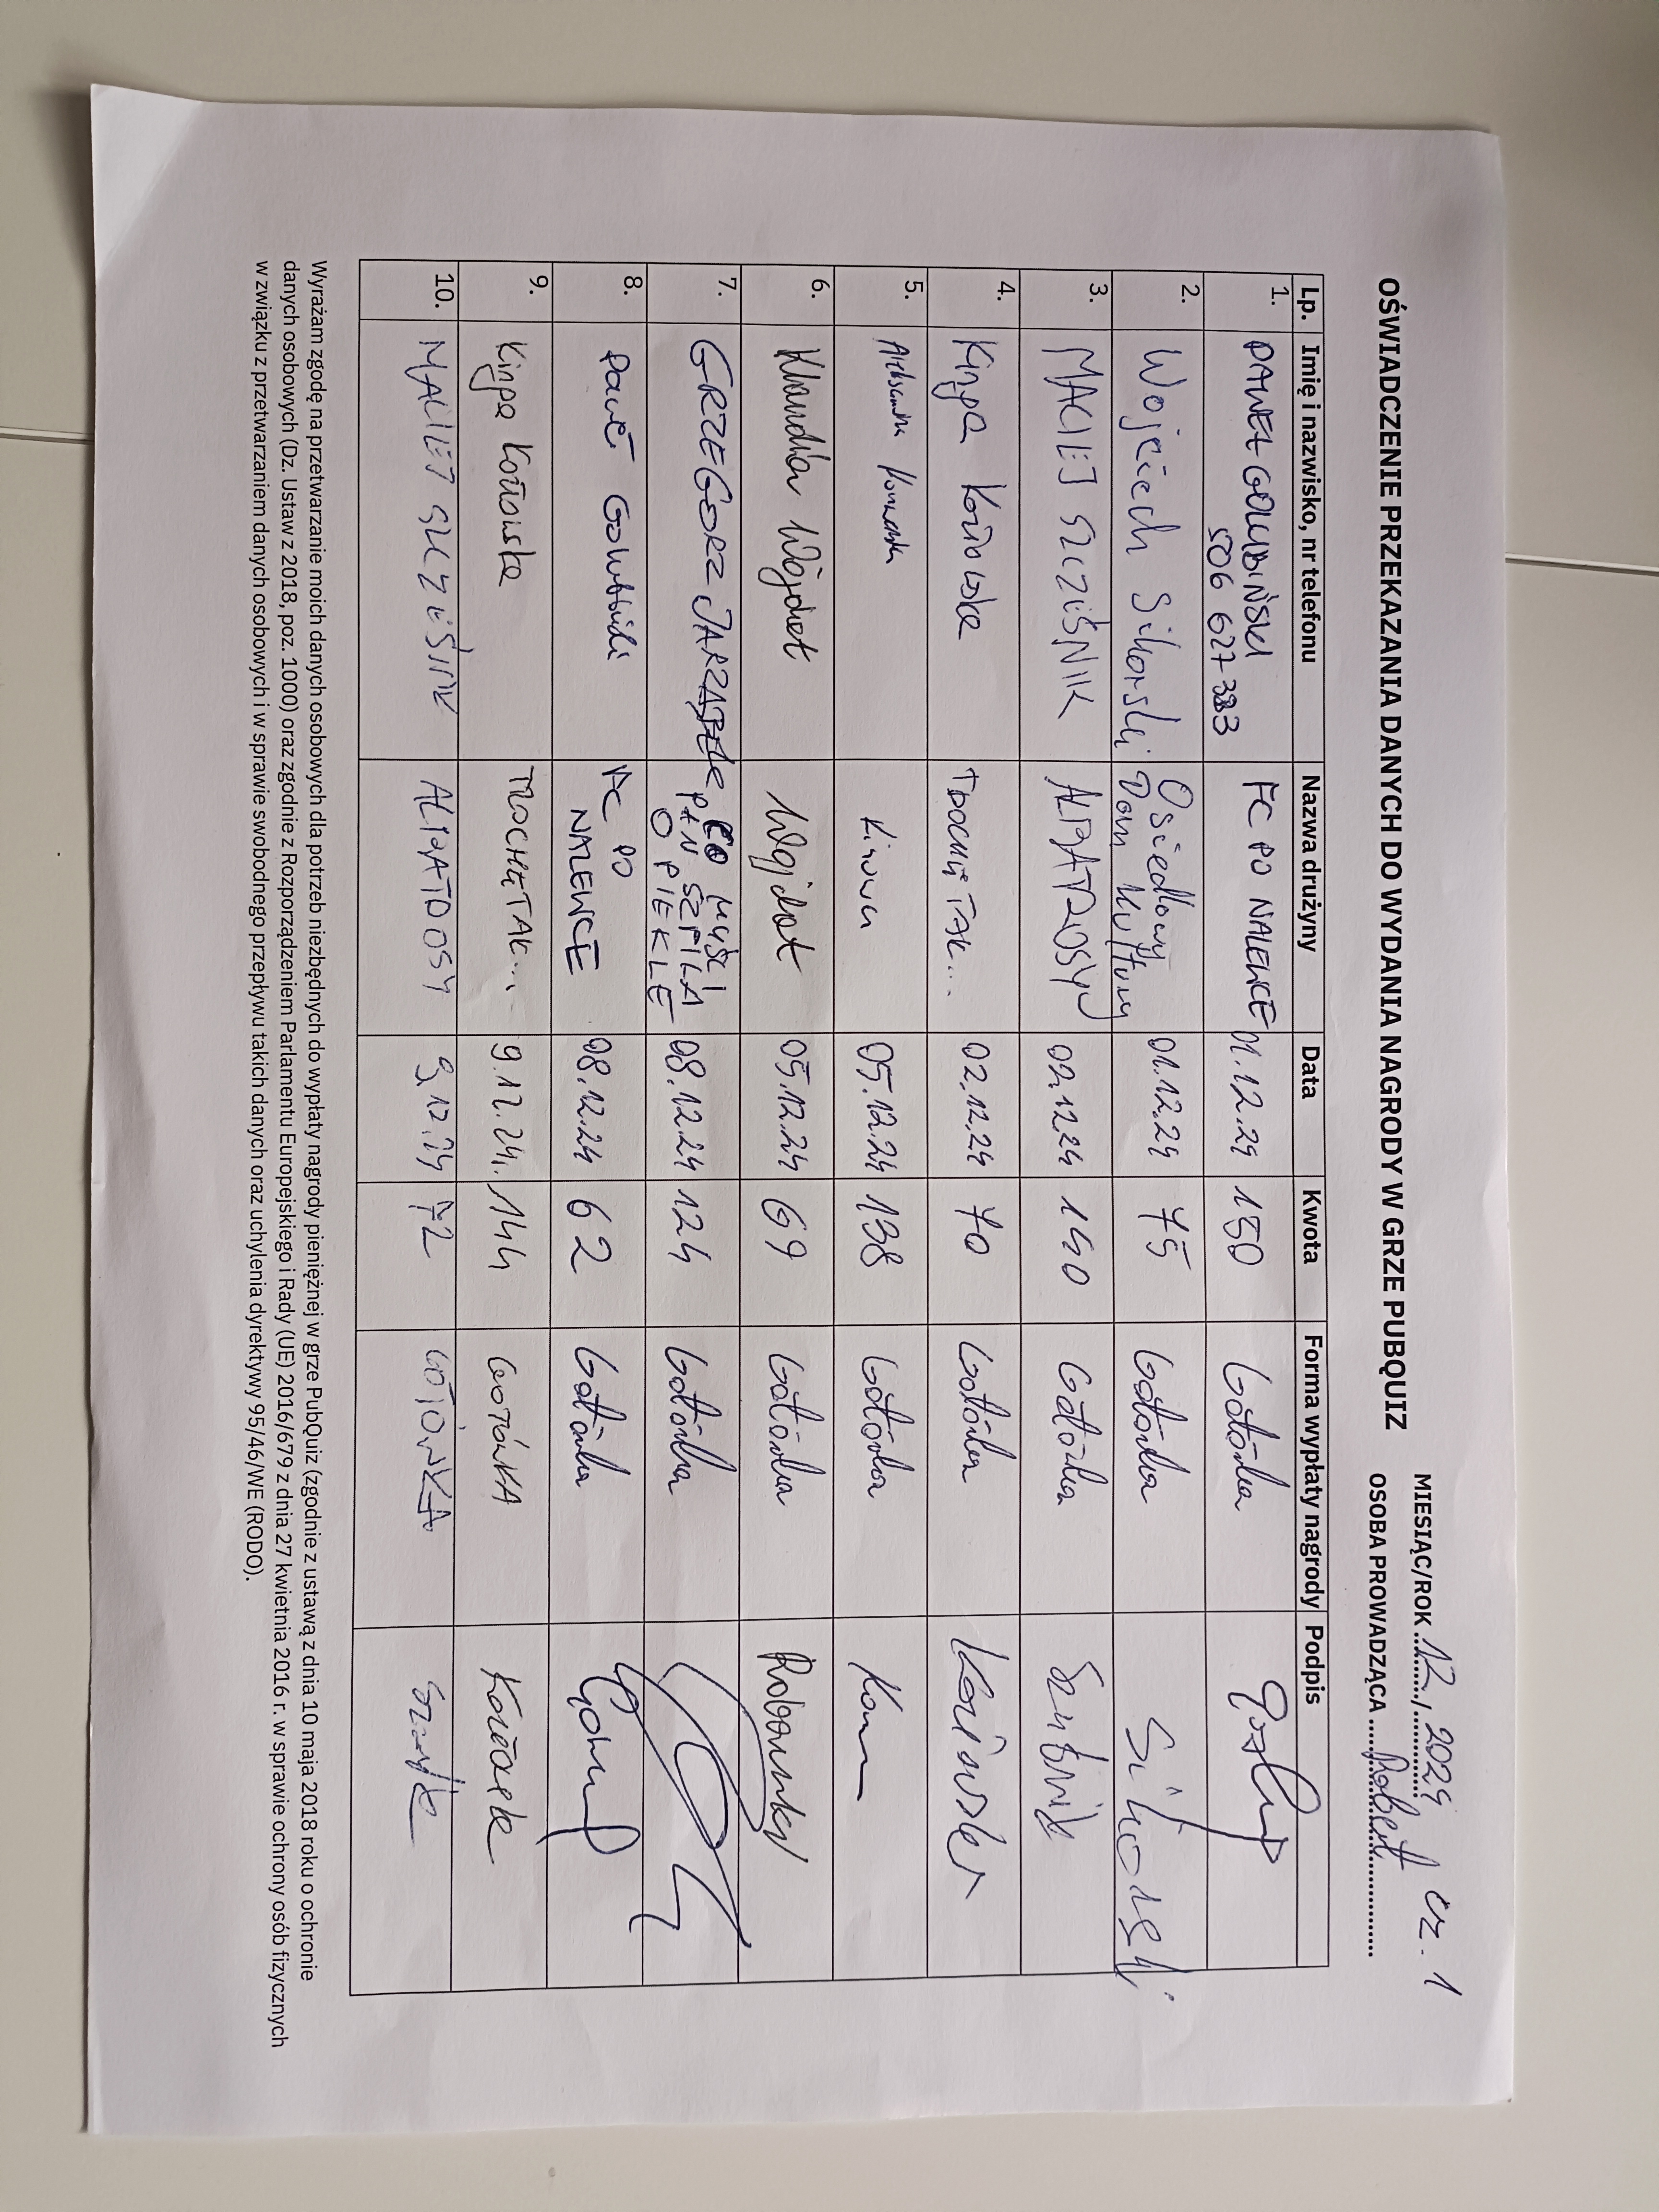 MIESIĄC/ROK 12, 2024 cz. 1
OŚWIADCZENIE PRZEKAZANIA DANYCH DO WYDANIA NAGRODY W GRZE PUBQUIZ
OSOBA PROWADZĄCA Robert
Lp. Imię i nazwisko, nr telefonu Nazwa drużyny Data Kwota Forma wypłaty nagrody Podpis
1. PAWEŁ GOŁUBIŃSKI FC PO NALEWCE 01.12.24 150 Gotówka
506 627 383
2. Wojciech Sikorski Osiedlowy 01.12.24 75 Gotówka Sikorski
Dom Kultury
3. MACIEJ SZCZEŚNIK ALBATROSY 02.12.24 140 Gotówka
4. Kinga Trochę TAK... 02.12.24 70 Gotówka
5. Aleksandra 05.12.24 138 Gotówka
6. Klaudia Wójdat 05.12.24 69 Gotówka
7. GRZEGORZ CO MYŚLI 08.12.24 124 Gotówka
PAN SZPILA
O PIEKLE
8. Paweł FC PO 08.12.24 62 Gotówka
NALEWCE
9. Kinga TROCHĘ TAK... 9.12.24. 144 GOTÓWKA
10. MACIEJ ALBATROSY 9.12.24 72 GOTÓWKA
Wyrażam zgodę na przetwarzanie moich danych osobowych dla potrzeb niezbędnych do wypłaty nagrody pieniężnej w grze PubQuiz (zgodnie z ustawą z dnia 10 maja 2018 roku o ochronie
danych osobowych (Dz. Ustaw z 2018, poz. 1000) oraz zgodnie z Rozporządzeniem Parlamentu Europejskiego i Rady (UE) 2016/679 z dnia 27 kwietnia 2016 r. w sprawie ochrony osób fizycznych
w związku z przetwarzaniem danych osobowych i w sprawie swobodnego przepływu takich danych oraz uchylenia dyrektywy 95/46/WE (RODO).